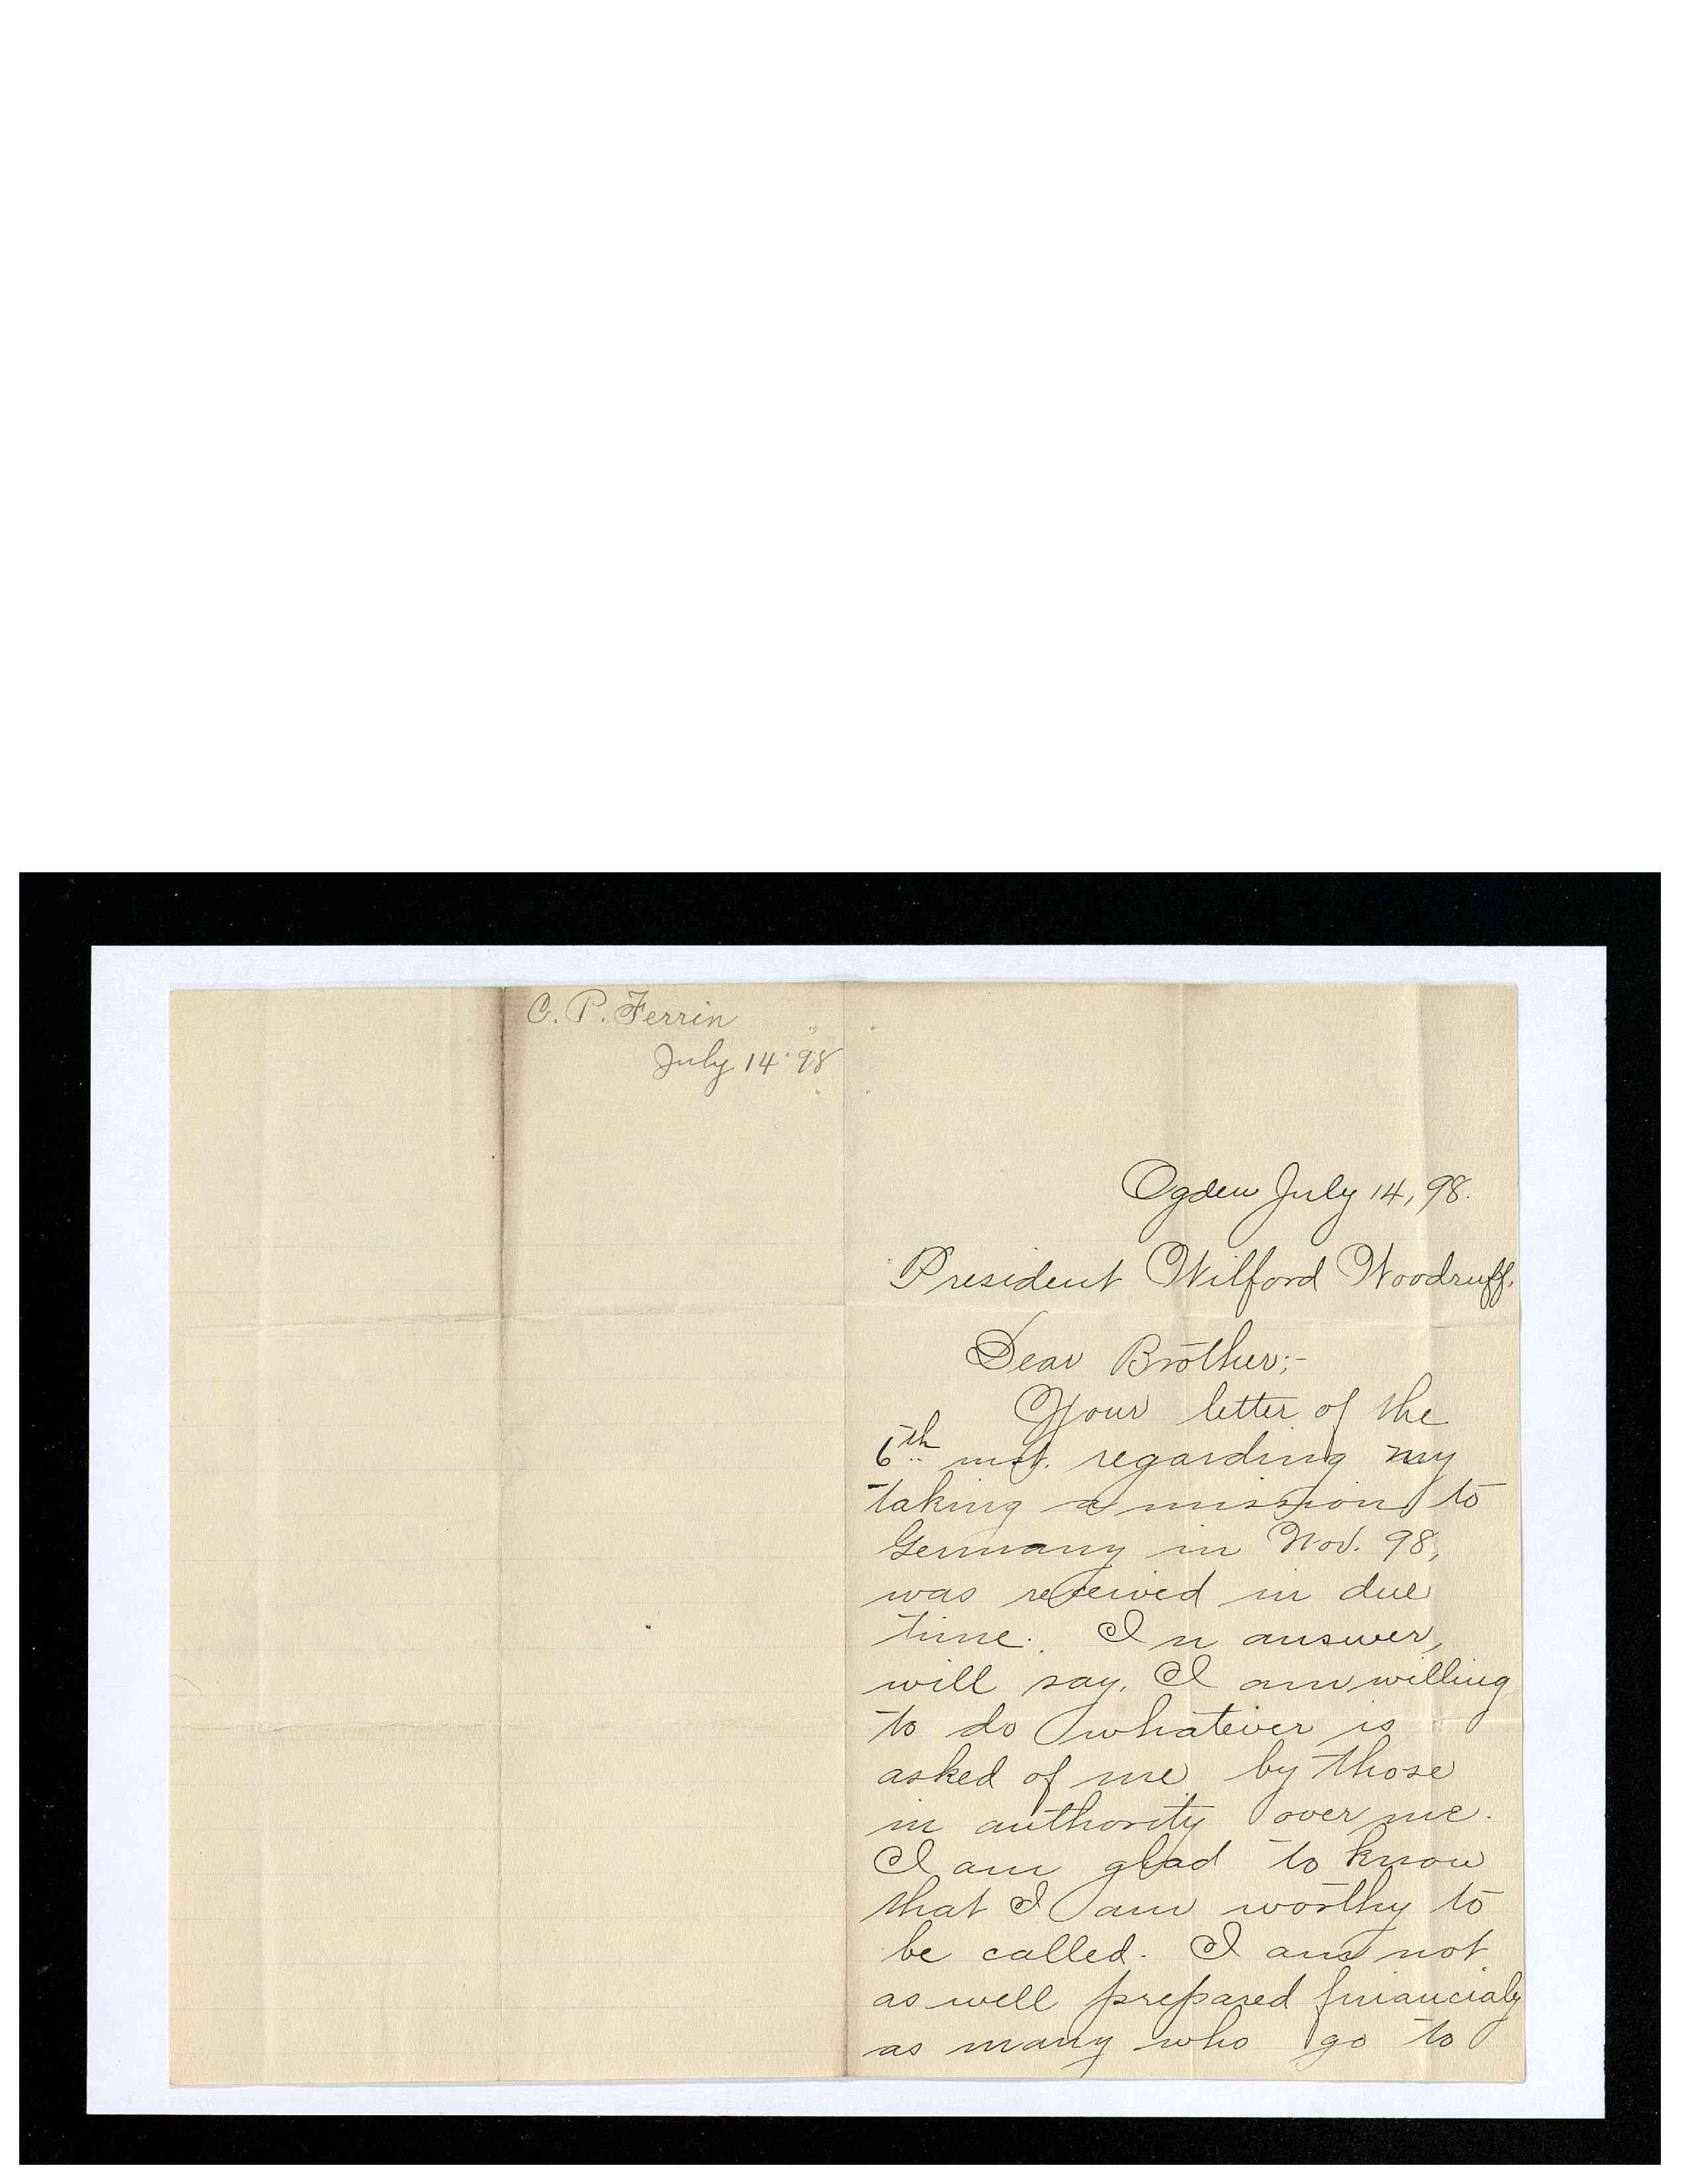 C. P. Ferrin
July 14 '98
Ogden July 14, 98.
President Wilford Woodruff.
Dear Brother;-
Your letter of the
6th inst. regarding my
taking a mission to
Germany in Nov. 98,
was received in due
time. In answer,
will say, I am willing
to do whatever is
asked of me by those
in authority over me.
I am glad to know
that I am worthy to
be called. I am not
as well prepared financialy
as many who go to